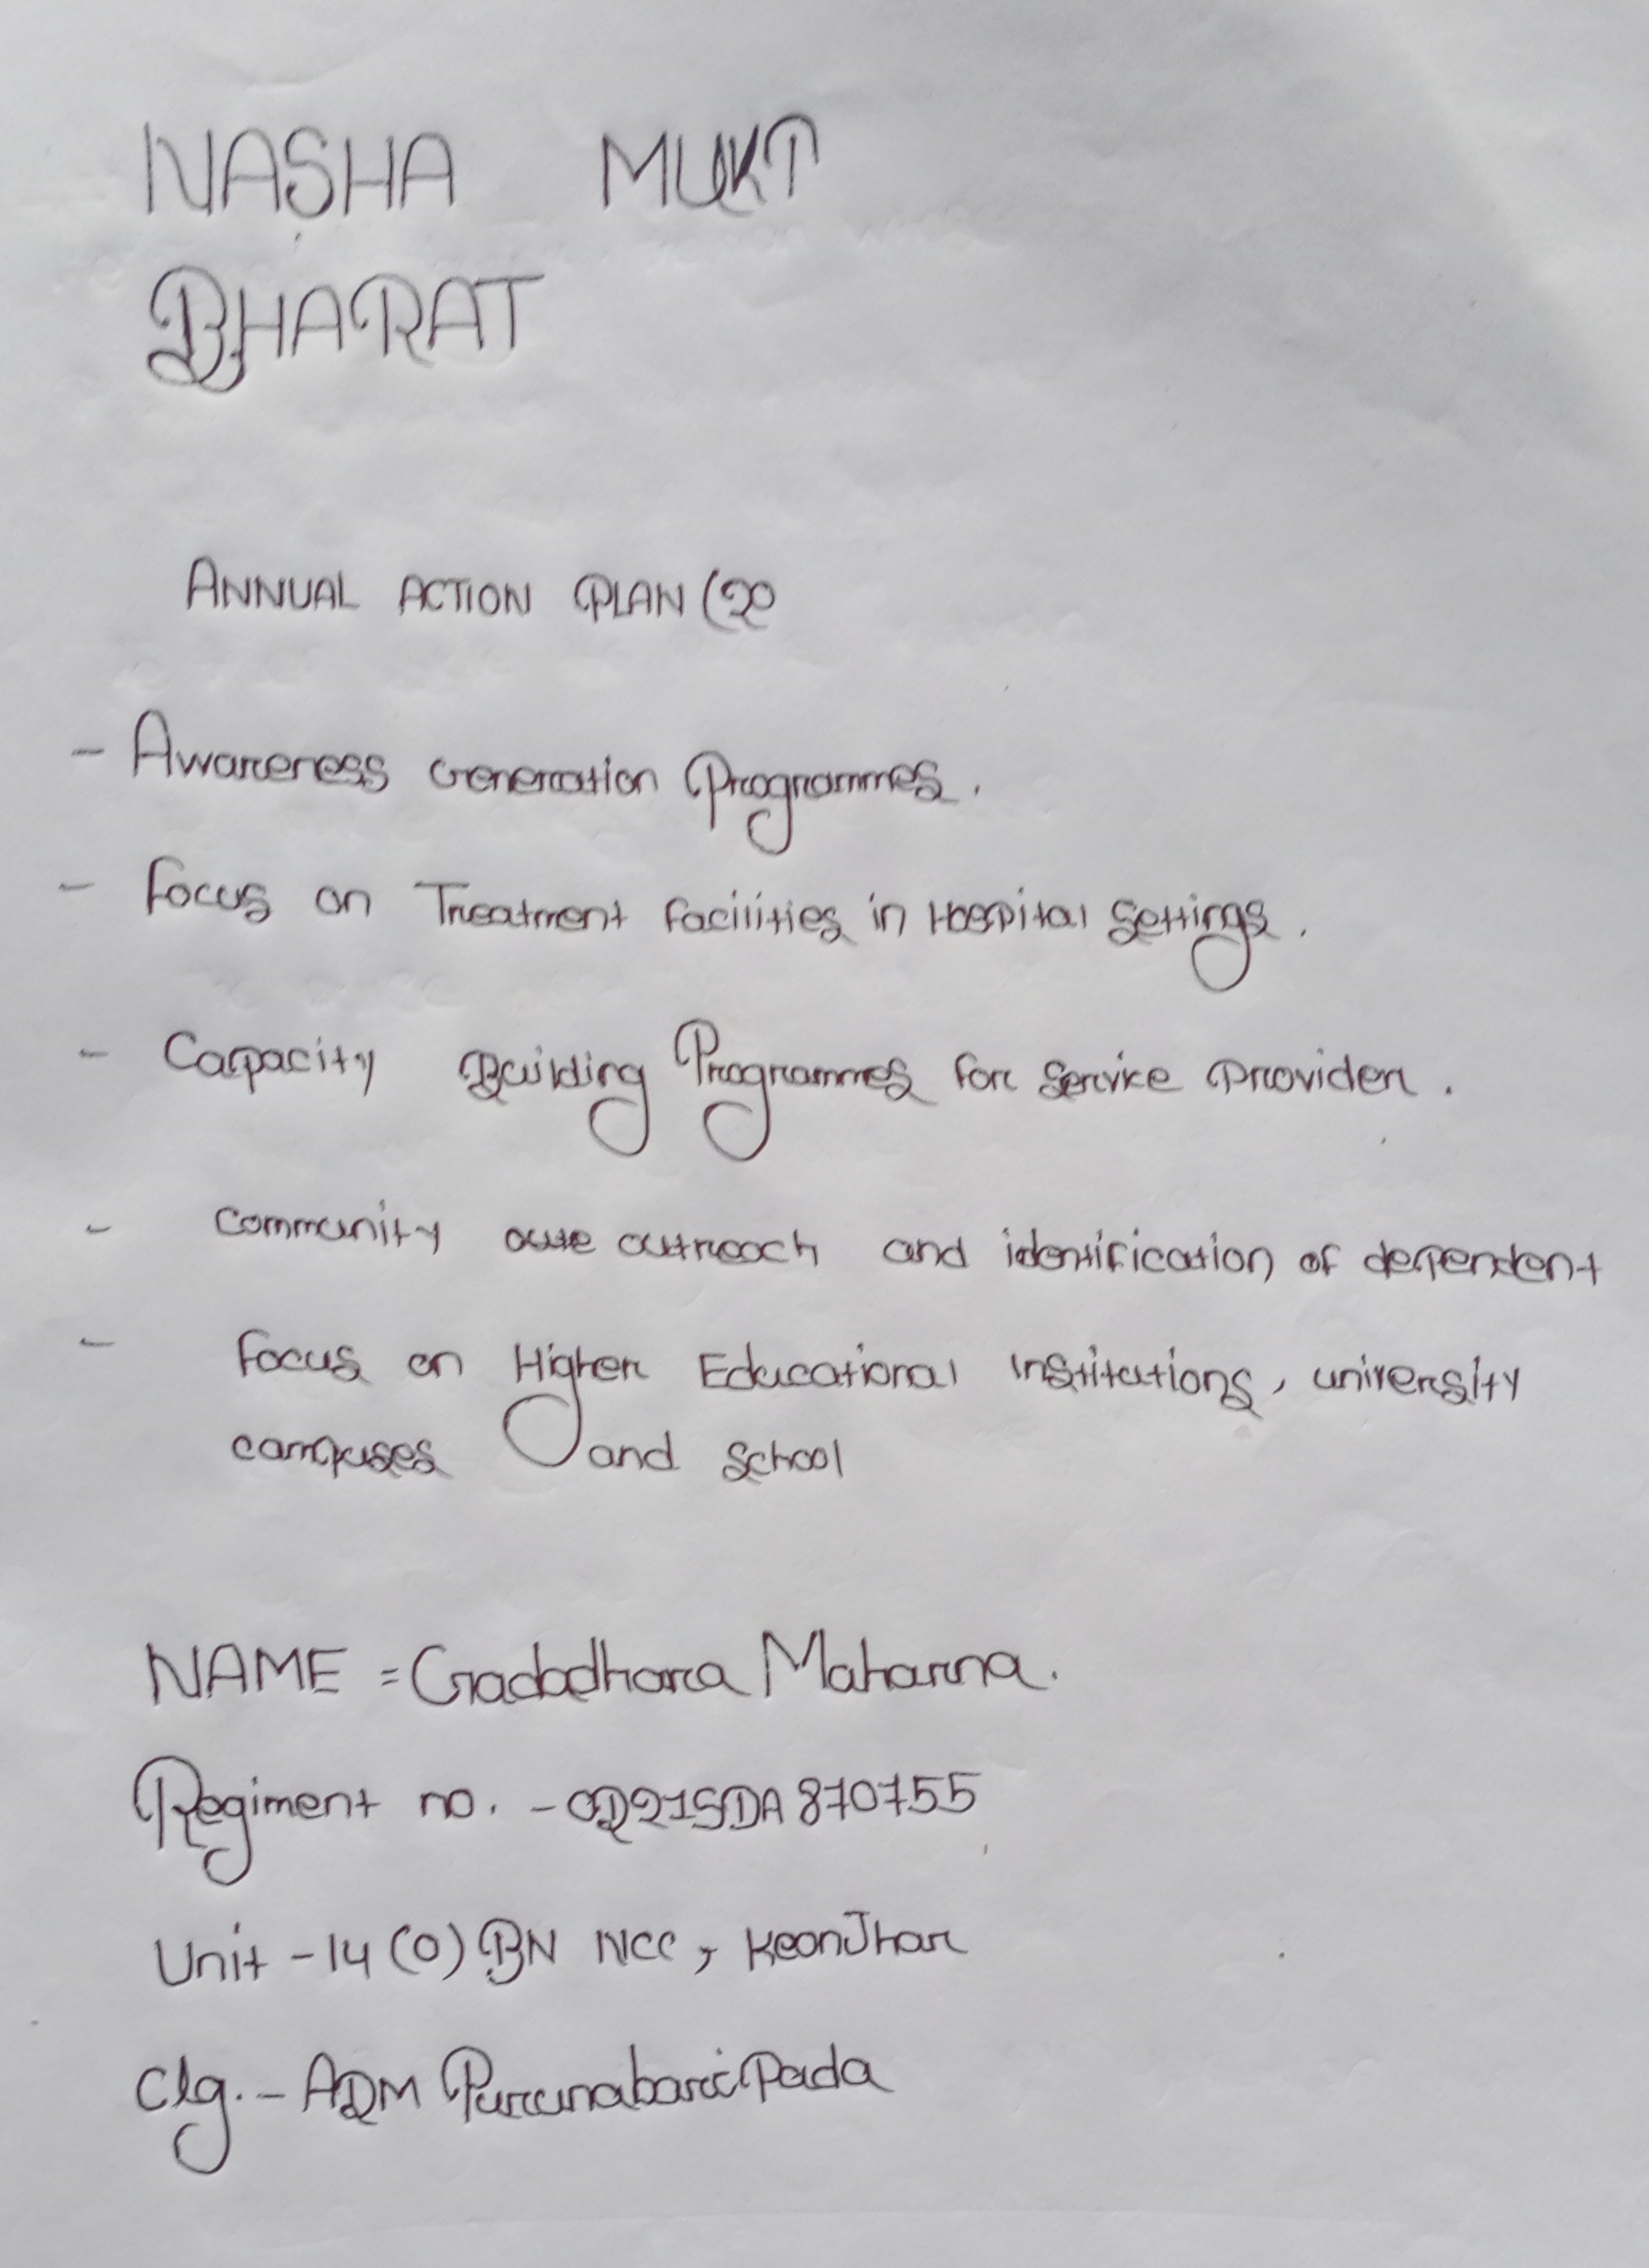 NASHA MUKT
BHARAT
ANNUAL ACTION PLAN (20
- Awareness Generation Programmes.
- Focus on Treatment facilities in Hospital Settings.
- Capacity Building Programmes for Service Provider.
- Community oute outreach and identification of dependent
- Focus on Higher Educational Institutions, university
campuses and School
NAME = Gadadhara Maharna.
Regiment no. - OD21SDA870755
Unit - 14 (O) BN NCC, KeonJhar
Clg. - ABM PurunabariPada